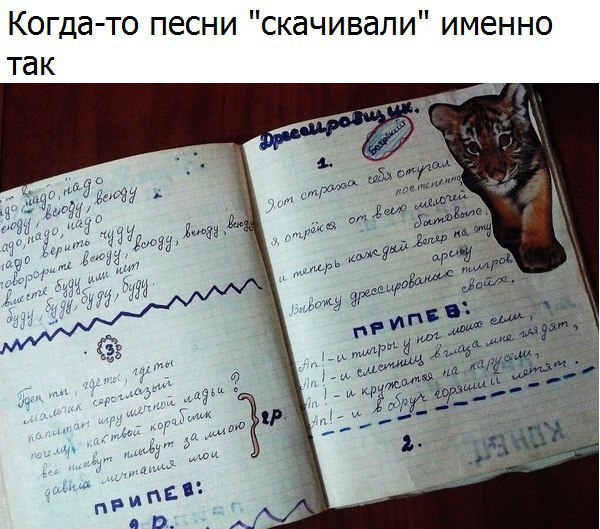 Когда-то песни "скачивали" именно
так
надо, надо
всюду, всюду
надо, надо, надо
надо верить чуду
всюду, всюду, всюду
вместе буду или нет
буду, буду, буду, буду.
3
где ты, где ты
мальчик сероглазый
капитан игрушечной ладьи?
почему, как твой кораблик
всё плывут плывут за мною
давние мечтания мои
2р.
ПРИПЕВ:
2 р.
Дрессировщик.
1.
Я от страха себя отучал
постепенно
я, отрёкся от всех мелочей
бытовых.
и теперь каждый вечер на эту
арену
Вывожу дрессированых тигров
своих.
ПРИПЕВ:
Ап! - и тигры у ног моих сели,
Ап! - и с лестниц в глаза мне глядят,
Ап! - и кружатся на карусели,
Ап! - и в обруч горящий летят.
2.
КОНЕЦ